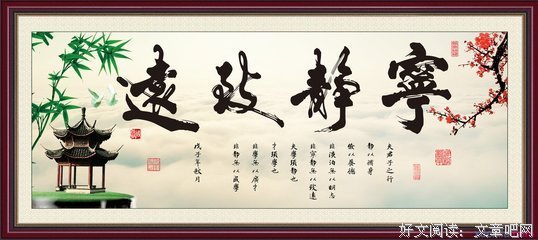 寧靜致遠
夫君子之行
靜以修身
儉以養德
非淡泊無以明志
非寧靜無以致遠
夫學須靜也
才須學也
非學無以廣才
非靜無以成學
戊子年秋月
好文阅读：文章吧网